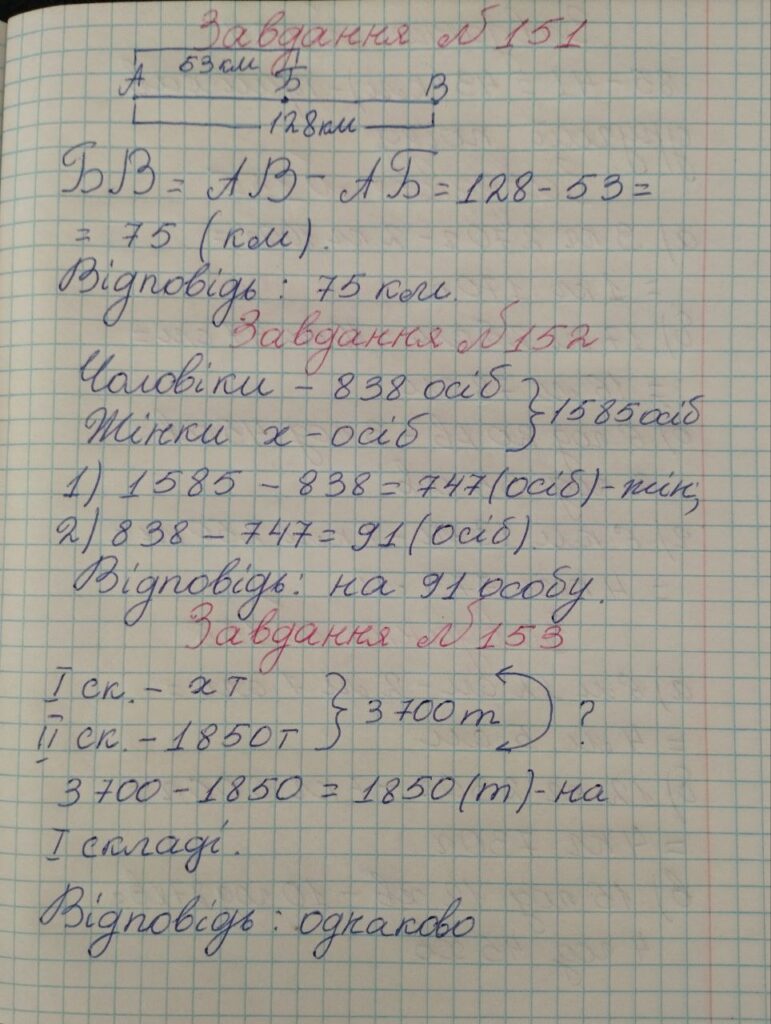 Завдання №151
53 км
А Б В
128 км
БВ = АВ - АБ = 128 - 53 =
= 75 (км).
Відповідь: 75 км.
Завдання №152
Чоловіки - 838 осіб
Жінки х - осіб } 1585 осіб
1) 1585 - 838 = 747 (осіб) - жін;
2) 838 - 747 = 91 (осіб).
Відповідь: на 91 особу.
Завдання №153
I ск. - х т
II ск. - 1850 т } 3 700 т ?
3 700 - 1850 = 1850 (т) - на
I складі.
Відповідь: однаково